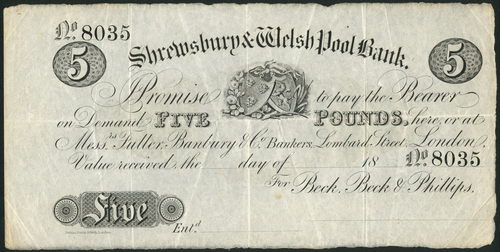 No. 8035
5
Shrewsbury & Welsh Pool Bank.
5
I Promise to pay the Bearer
on Demand FIVE POUNDS, here, or at
Messrs. Fuller, Banbury & Co. Bankers, Lombard Street, London.
Value received the day of 18 No. 8035
For Beck, Beck & Phillips.
Five
Entd.